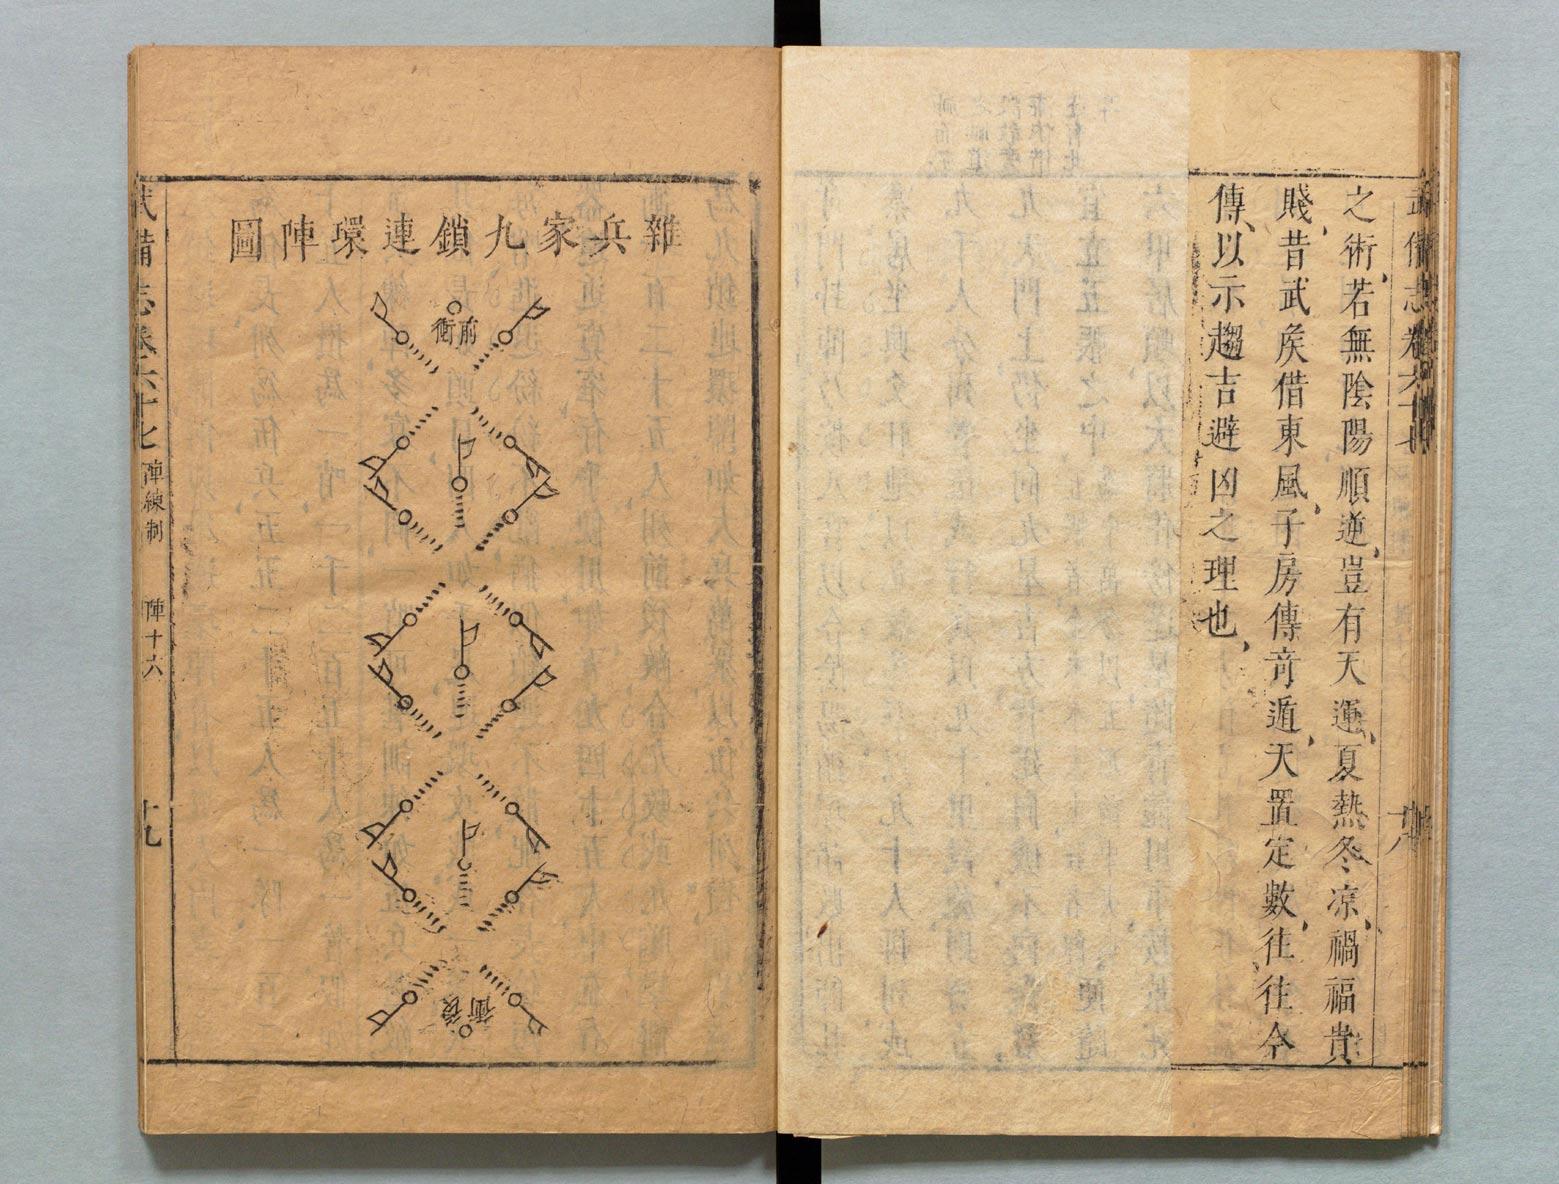 武備志卷六十七
十八
之術、若無陰陽順逆、豈有天運、夏熱冬凉、禍福貴
賤、昔武矦借東風、子房傳竒遁、天置定數、徃徃今
傳、以示趨吉避凶之理也、
雜兵家九鎖連環陣圖
前衝
後衝
武備志卷六十七
陣練制
陣十六
十九